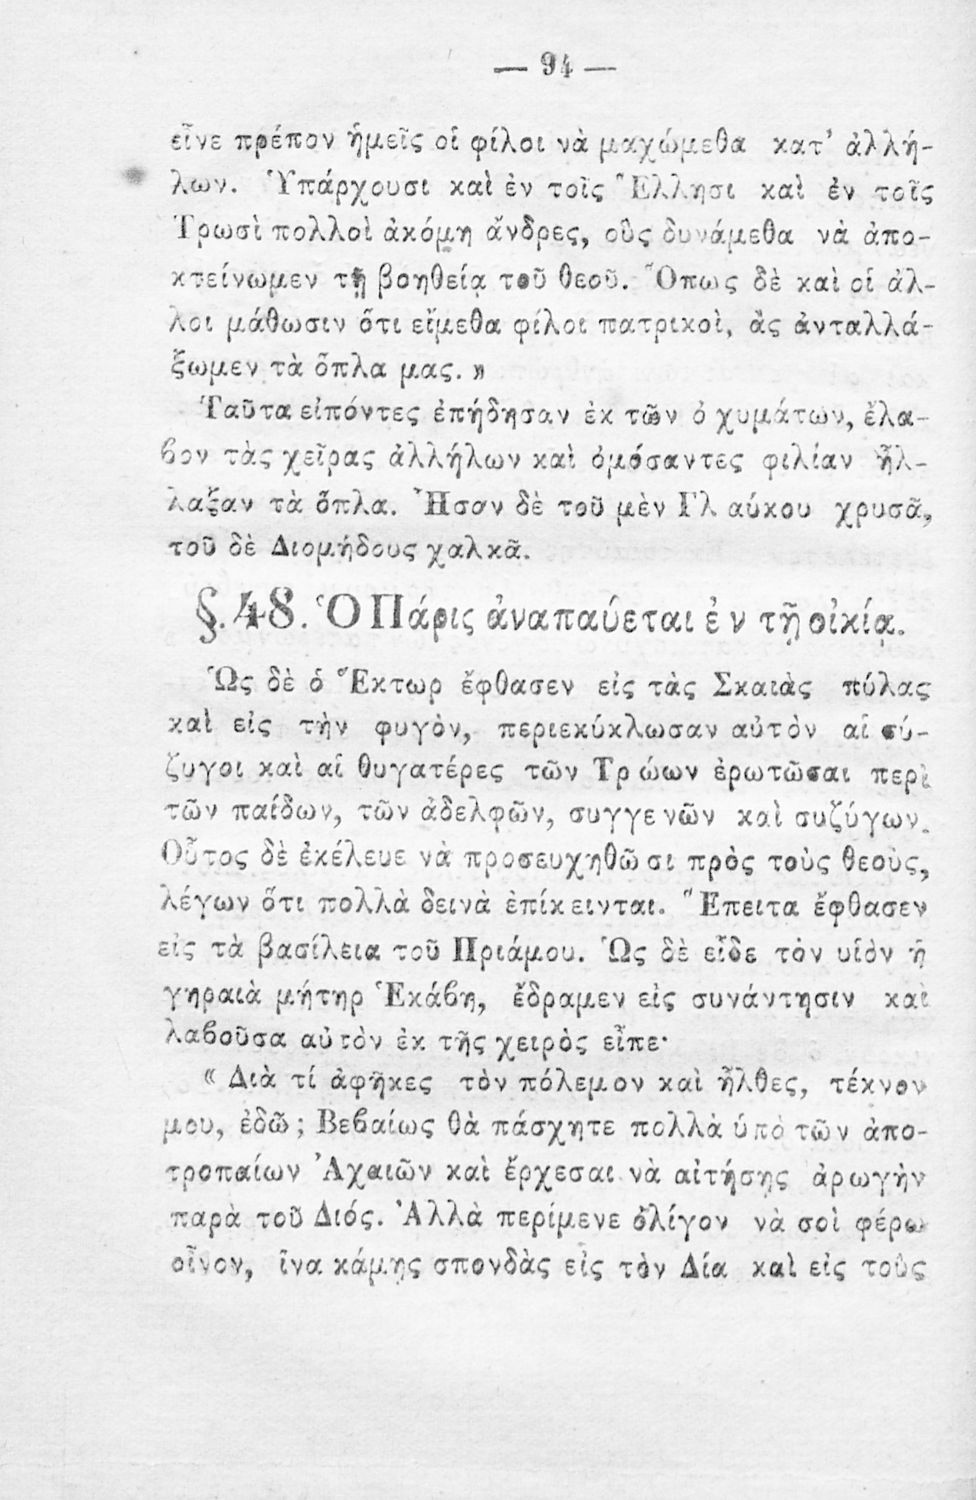 — 94 —
εἶνε πρέπον ἡμεῖς οἱ φίλοι νὰ μαχώμεθα κατ’ ἀλλή-
λων. Ὑπάρχουσι καὶ ἐν τοῖς Ἕλλησι καὶ ἐν τοῖς
Τρωσὶ πολλοὶ ἀκόμη ἄνδρες, οὓς δυνάμεθα νὰ ἀπο-
κτείνωμεν τῇ βοηθείᾳ τοῦ θεοῦ. Ὅπως δὲ καὶ οἱ ἄλ-
λοι μάθωσιν ὅτι εἴμεθα φίλοι πατρικοὶ, ἂς ἀνταλλά-
ξωμεν τὰ ὅπλα μας. »
Ταῦτα εἰπόντες ἐπήδησαν ἐκ τῶν ὀχυμάτων, ἔλα-
βον τὰς χεῖρας ἀλλήλων καὶ ὀμόσαντες φιλίαν ἤλ-
λαξαν τὰ ὅπλα. Ἦσαν δὲ τοῦ μὲν Γλαύκου χρυσᾶ,
τοῦ δὲ Διομήδους χαλκᾶ.
§. 48. Ὁ Πάρις ἀναπαύεται ἐν τῇ οἰκίᾳ.
Ὡς δὲ ὁ Ἕκτωρ ἔφθασεν εἰς τὰς Σκαιὰς πύλας
καὶ εἰς τὴν φυγὸν, περιεκύκλωσαν αὐτὸν αἱ σύ-
ζυγοι καὶ αἱ θυγατέρες τῶν Τρώων ἐρωτῶσαι περὶ
τῶν παίδων, τῶν ἀδελφῶν, συγγενῶν καὶ συζύγων.
Οὗτος δὲ ἐκέλευε νὰ προσευχηθῶσι πρὸς τοὺς θεοὺς,
λέγων ὅτι πολλὰ δεινὰ ἐπίκεινται. Ἔπειτα ἔφθασεν
εἰς τὰ βασίλεια τοῦ Πριάμου. Ὡς δὲ εἶδε τὸν υἱὸν ἡ
γηραιὰ μήτηρ Ἑκάβη, ἔδραμεν εἰς συνάντησιν καὶ
λαβοῦσα αὐτὸν ἐκ τῆς χειρὸς εἶπε·
« Διὰ τί ἀφῆκες τὸν πόλεμον καὶ ἦλθες, τέκνον
μου, ἐδῶ ; Βεβαίως θὰ πάσχητε πολλὰ ὑπὸ τῶν ἀπο-
τροπαίων Ἀχαιῶν καὶ ἔρχεσαι νὰ αἰτήσῃς ἀρωγὴν
παρὰ τοῦ Διός. Ἀλλὰ περίμενε ὀλίγον νὰ σοὶ φέρω
οἶνον, ἵνα κάμῃς σπονδὰς εἰς τὸν Δία καὶ εἰς τοὺς